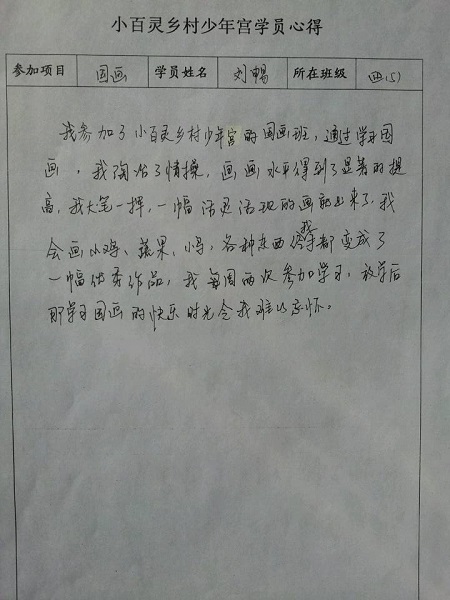 小百灵乡村少年宫学员心得
参加项目 国画 学员姓名 刘畅 所在班级 四(5)
我参加了小百灵乡村少年宫的国画班，通过学习国
画，我陶冶了情操，画画水平得到了显著的提
高，我大笔一挥，一幅活灵活现的画就出来了，我
会画小鸡、蔬果、小鸟，各种东西我都变成了
一幅优秀作品，我每周两次参加学习，放学后
那学习国画的快乐时光令我难以忘怀。